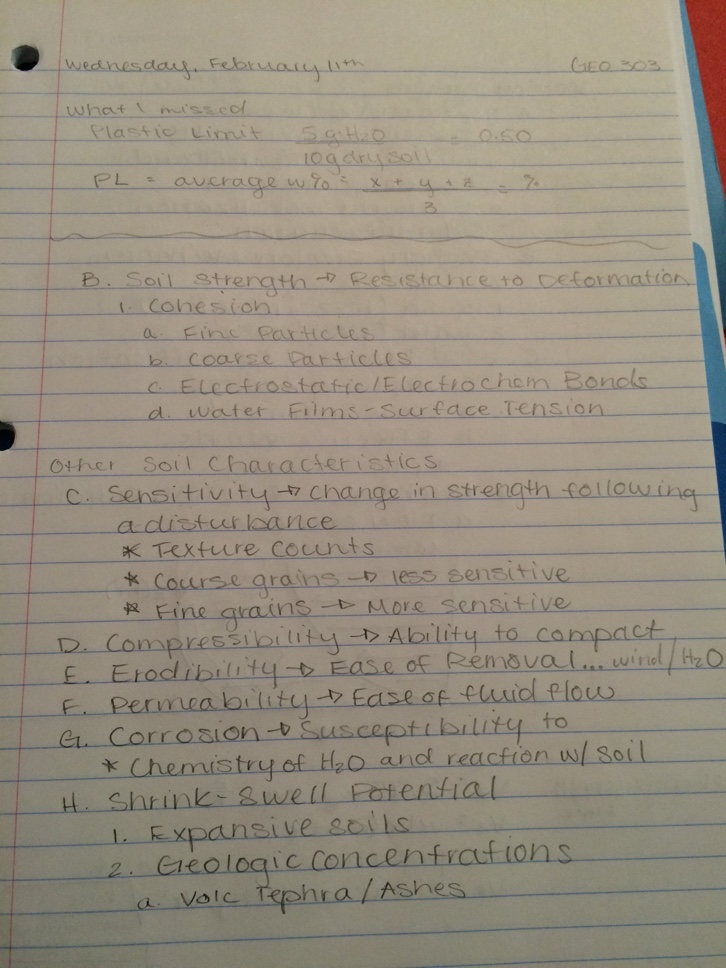 Wednesday, February 11th GEO 303
What I missed
Plastic Limit 5g H2O = 0.50
10g dry soil
PL = average w% = x + y + z = %
3
B. Soil Strength → Resistance to Deformation
1. Cohesion
a. Fine Particles
b. Coarse Particles
c. Electrostatic/Electrochem Bonds
d. Water Films - Surface Tension
Other Soil Characteristics
C. Sensitivity → Change in strength following
a disturbance
* Texture Counts
* Course grains → less sensitive
* Fine grains → More sensitive
D. Compressibility → Ability to compact
E. Erodibility → Ease of Removal... wind/H2O
F. Permeability → Ease of fluid flow
G. Corrosion → Susceptibility to
* Chemistry of H2O and reaction w/ soil
H. Shrink-Swell Potential
1. Expansive soils
2. Geologic Concentrations
a. Volc Tephra/Ashes